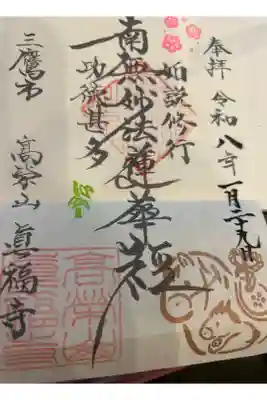 奉拝 令和八年一月二十九日
如説修行
南無妙法蓮華経
功徳甚多
三鷹市 高栄山 眞福寺